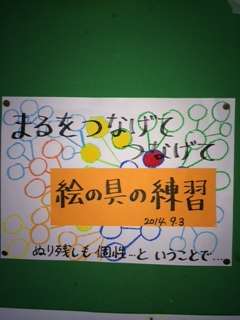 まるをつなげて
つなげて
絵の具の練習
2014.9.3
ぬり残しも個性…と いうことで…